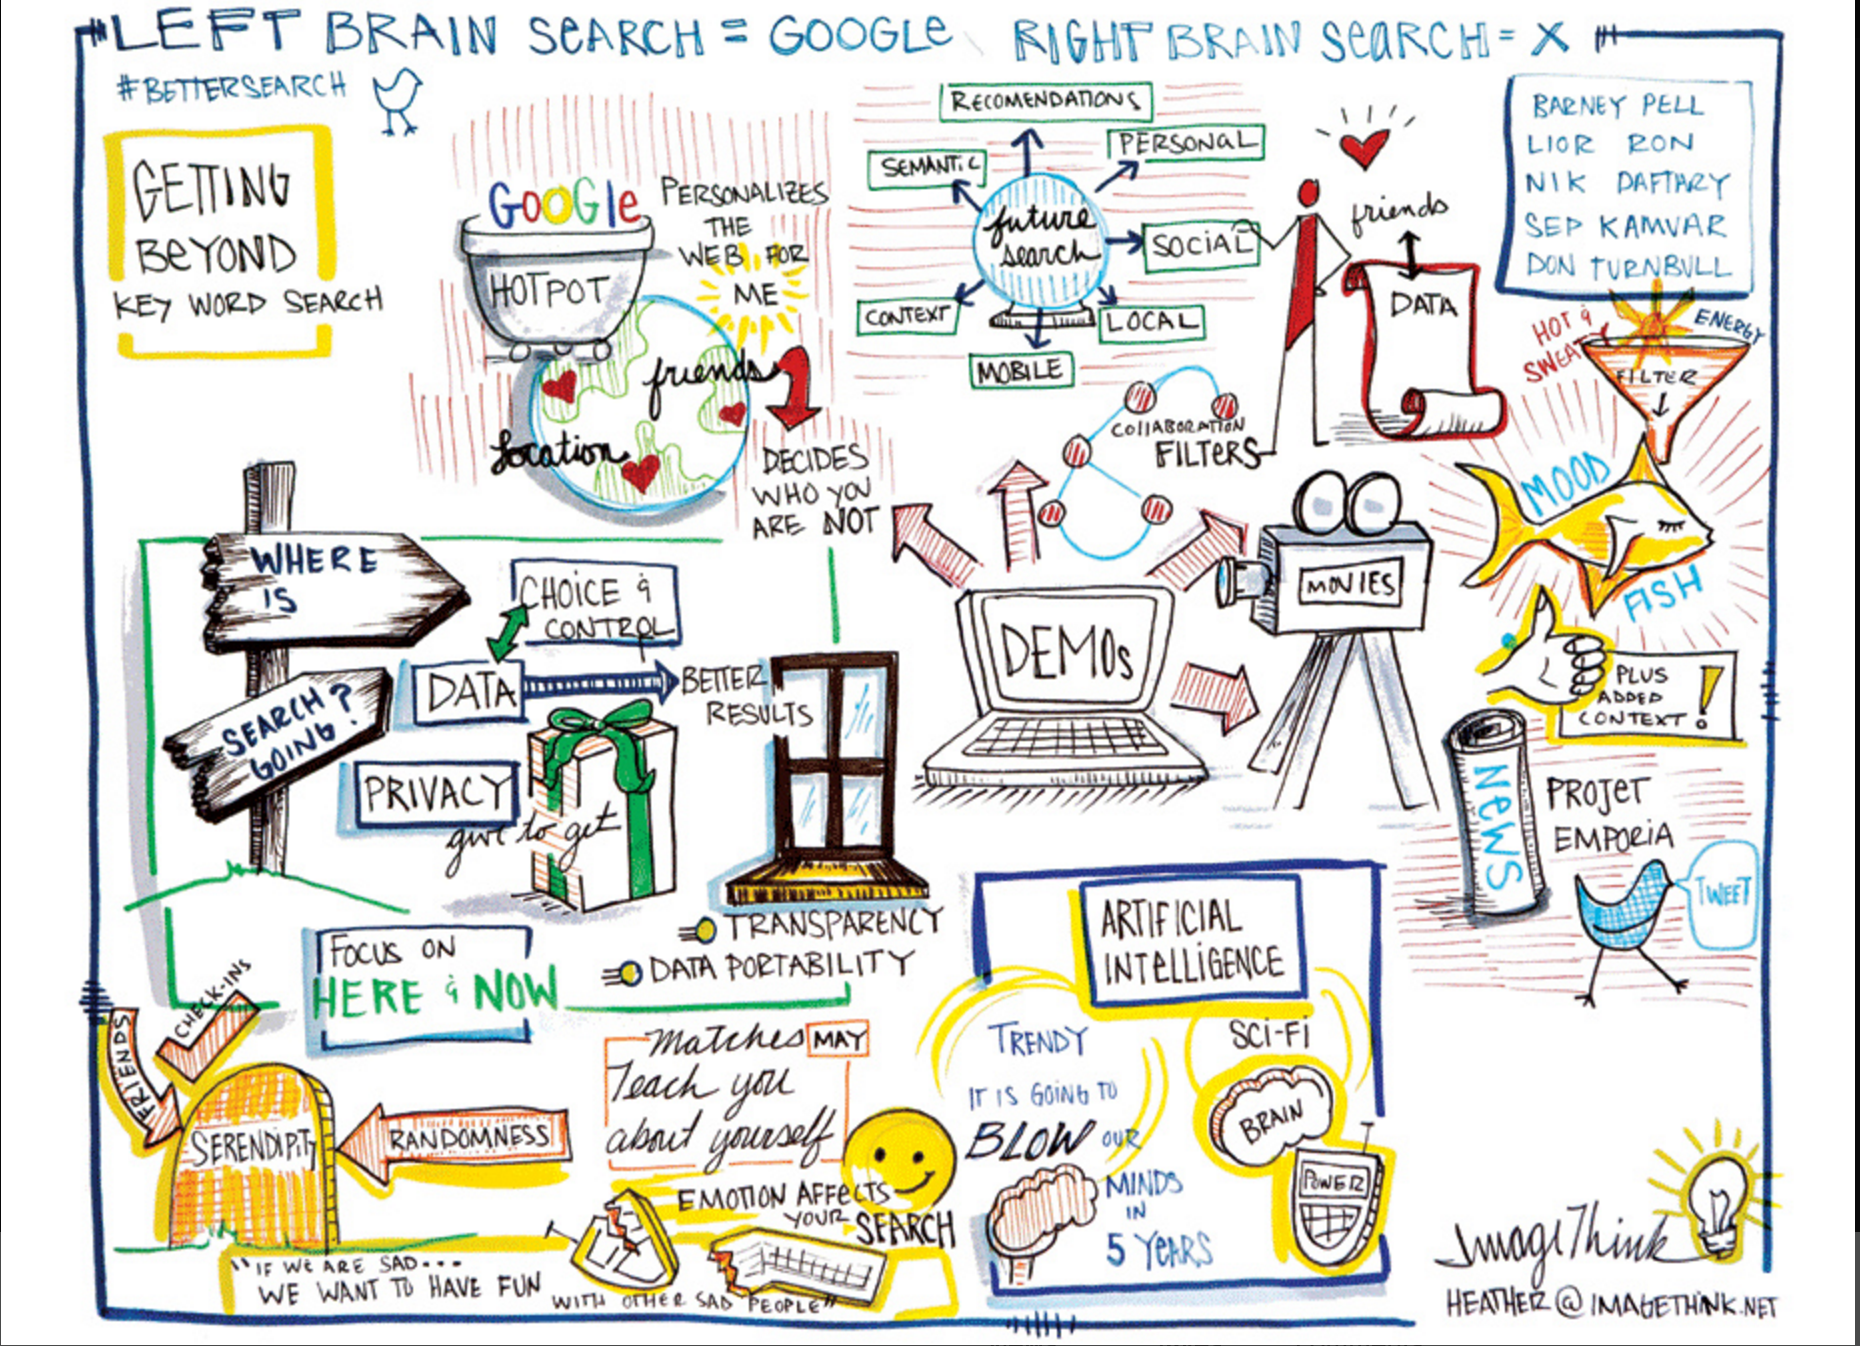 LEFT BRAIN SEARCH = GOOGLE RIGHT BRAIN SEARCH = X
#BETTERSEARCH
GETTING
BEYOND
KEY WORD SEARCH
GOOGLE
HOTPOT
PERSONALIZES
THE
WEB FOR
ME
friends
location
DECIDES
WHO YOU
ARE NOT
RECOMENDATIONS
SEMANTIC
PERSONAL
future
search
SOCIAL
CONTEXT
LOCAL
MOBILE
friends
DATA
COllABORATION
FILTERS
BARNEY PELL
LIOR RON
NIK DAFTARY
SEP KAMVAR
DON TURNBULL
HOT &
SWEAT
ENERGY
FILTER
MOOD
FISH
PLUS
ADDED
CONTEXT!
WHERE
IS
SEARCH?
GOING
CHOICE &
CONTROL
DATA
BETTER
RESULTS
PRIVACY
give to get
TRANSPARENCY
DATA PORTABILITY
FOCUS ON
HERE & NOW
DEMOs
MOVIES
NEWS
PROJET
EMPORIA
TWEET
FRIENDS
CHECK-INS
SERENDIPITY
RANDOMNESS
Matches MAY
Teach you
about yourself
EMOTION AFFECTS
YOUR
SEARCH
"IF WE ARE SAD...
WE WANT TO HAVE FUN
WITH OTHER SAD PEOPLE"
ARTIFICIAL
INTELLIGENCE
TRENDY
IT IS GOING TO
BLOW OUR
MINDS
IN
5 YEARS
SCI-FI
BRAIN
POWER
ImageThink
HEATHER@IMAGETHINK.NET